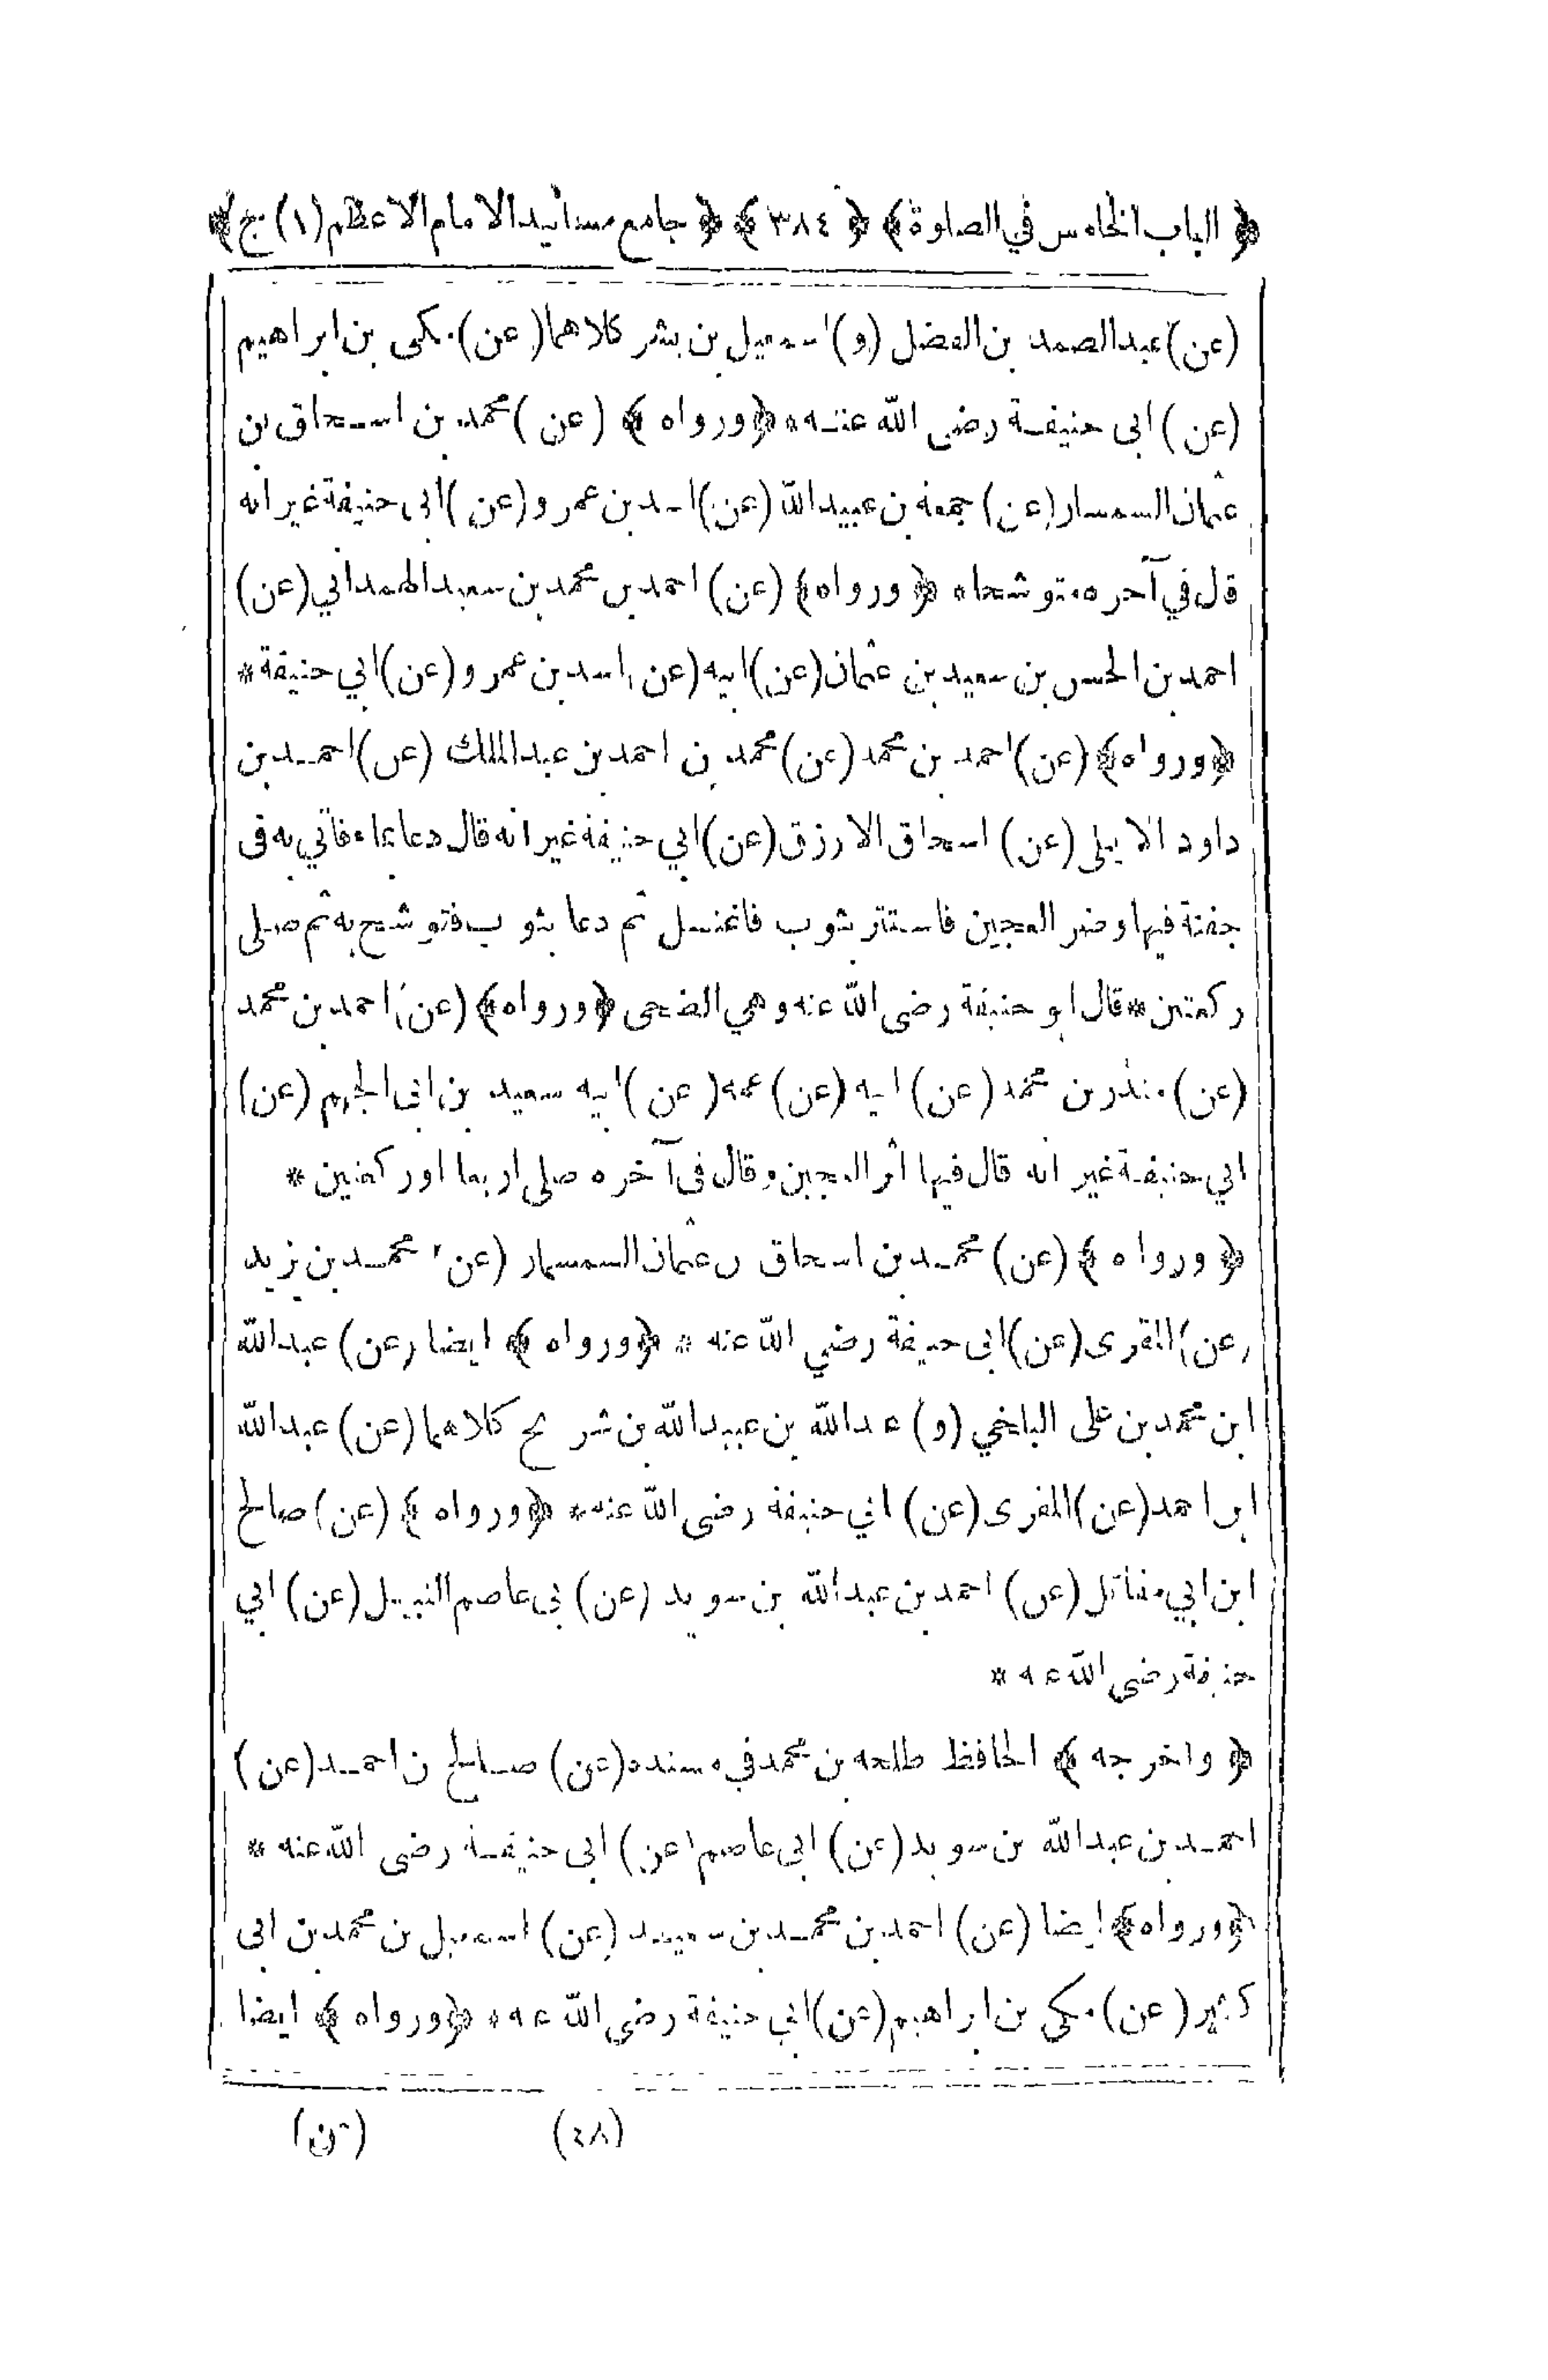 ﴿ الباب الخامس في الصلوة ﴾ ﴿ ٣٨٤ ﴾ ﴿ جامع مسانيد الامام الاعظم (١) ج ﴾
(عن) عبد الصمد بن الفضل (و) اسمعيل بن بشر كلاهما (عن) مكى بن ابراهيم
(عن) ابى حنيفة رضى الله عنه * ﴿ورواه﴾ (عن) محمد بن اسحاق بن
عثمان السمسار (عن) جمعة بن عبيد الله (عن) اسد بن عمرو (عن) ابى حنيفة غير انه
قال في آخره متوشحا به ﴿ورواه﴾ (عن) احمد بن محمد بن سعيد الهمداني (عن)
احمد بن الحسن بن سعيد بن عثمان (عن) ابيه (عن) اسد بن عمرو (عن) ابي حنيفة *
﴿ورواه﴾ (عن) احمد بن محمد (عن) محمد بن احمد بن عبد الملك (عن) احمد بن
داود الايلى (عن) اسحاق الازرق (عن) ابي حنيفة غير انه قال دعا بماء فاتي به فى
جفنة فيها وضر العجين فاستتر بثوب فاغتسل ثم دعا بثوب فتوشح به ثم صلى
ركعتين * قال ابو حنيفة رضى الله عنه وهي الضحى ﴿ورواه﴾ (عن) احمد بن محمد
(عن) منذر بن محمد (عن) ابيه (عن) عمه (عن) ابيه سعيد بن ابى الجهم (عن)
ابي حنيفة غير انه قال فيها اثر العجين وقال فى آخره صلى اربعا او ركعتين *
﴿ورواه﴾ (عن) محمد بن اسحاق بن عثمان السمسار (عن) محمد بن يزيد
(عن) المقرى (عن) ابى حنيفة رضي الله عنه * ﴿ورواه﴾ ايضا (عن) عبد الله
ابن محمد بن على البلخي (و) عبد الله بن عبيد الله بن شريح كلاهما (عن) عبد الله
ابن احمد (عن) المقرى (عن) ابي حنيفة رضى الله عنه * ﴿ورواه﴾ (عن) صالح
ابن ابي مقاتل (عن) احمد بن عبد الله بن سويد (عن) ابى عاصم النبيل (عن) ابي
حنيفة رضي الله عنه *
﴿واخرجه﴾ الحافظ طلحه بن محمد في مسنده (عن) صالح بن احمد (عن)
احمد بن عبد الله بن سويد (عن) ابى عاصم (عن) ابى حنيفة رضى الله عنه *
﴿ورواه﴾ ايضا (عن) احمد بن محمد بن سعيد (عن) اسمعيل بن محمد بن ابى
كثير (عن) مكى بن ابراهيم (عن) ابي حنيفة رضي الله عنه * ﴿ورواه﴾ ايضا
(٤٨)